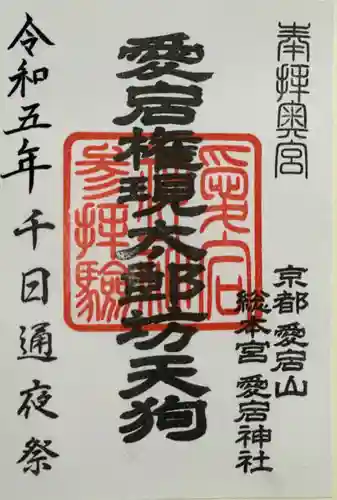 奉拝奥宮
京都愛宕山
総本宮愛宕神社
愛宕権現太郎坊天狗
令和五年千日通夜祭